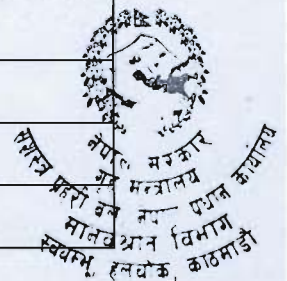 नेपाल सरकार
गृह मन्त्रालय
सशस्त्र प्रहरी बल नेपाल प्रधान कार्यालय
मानव श्रोत विभाग
स्वयम्भू, हलचोक, काठमाडौं